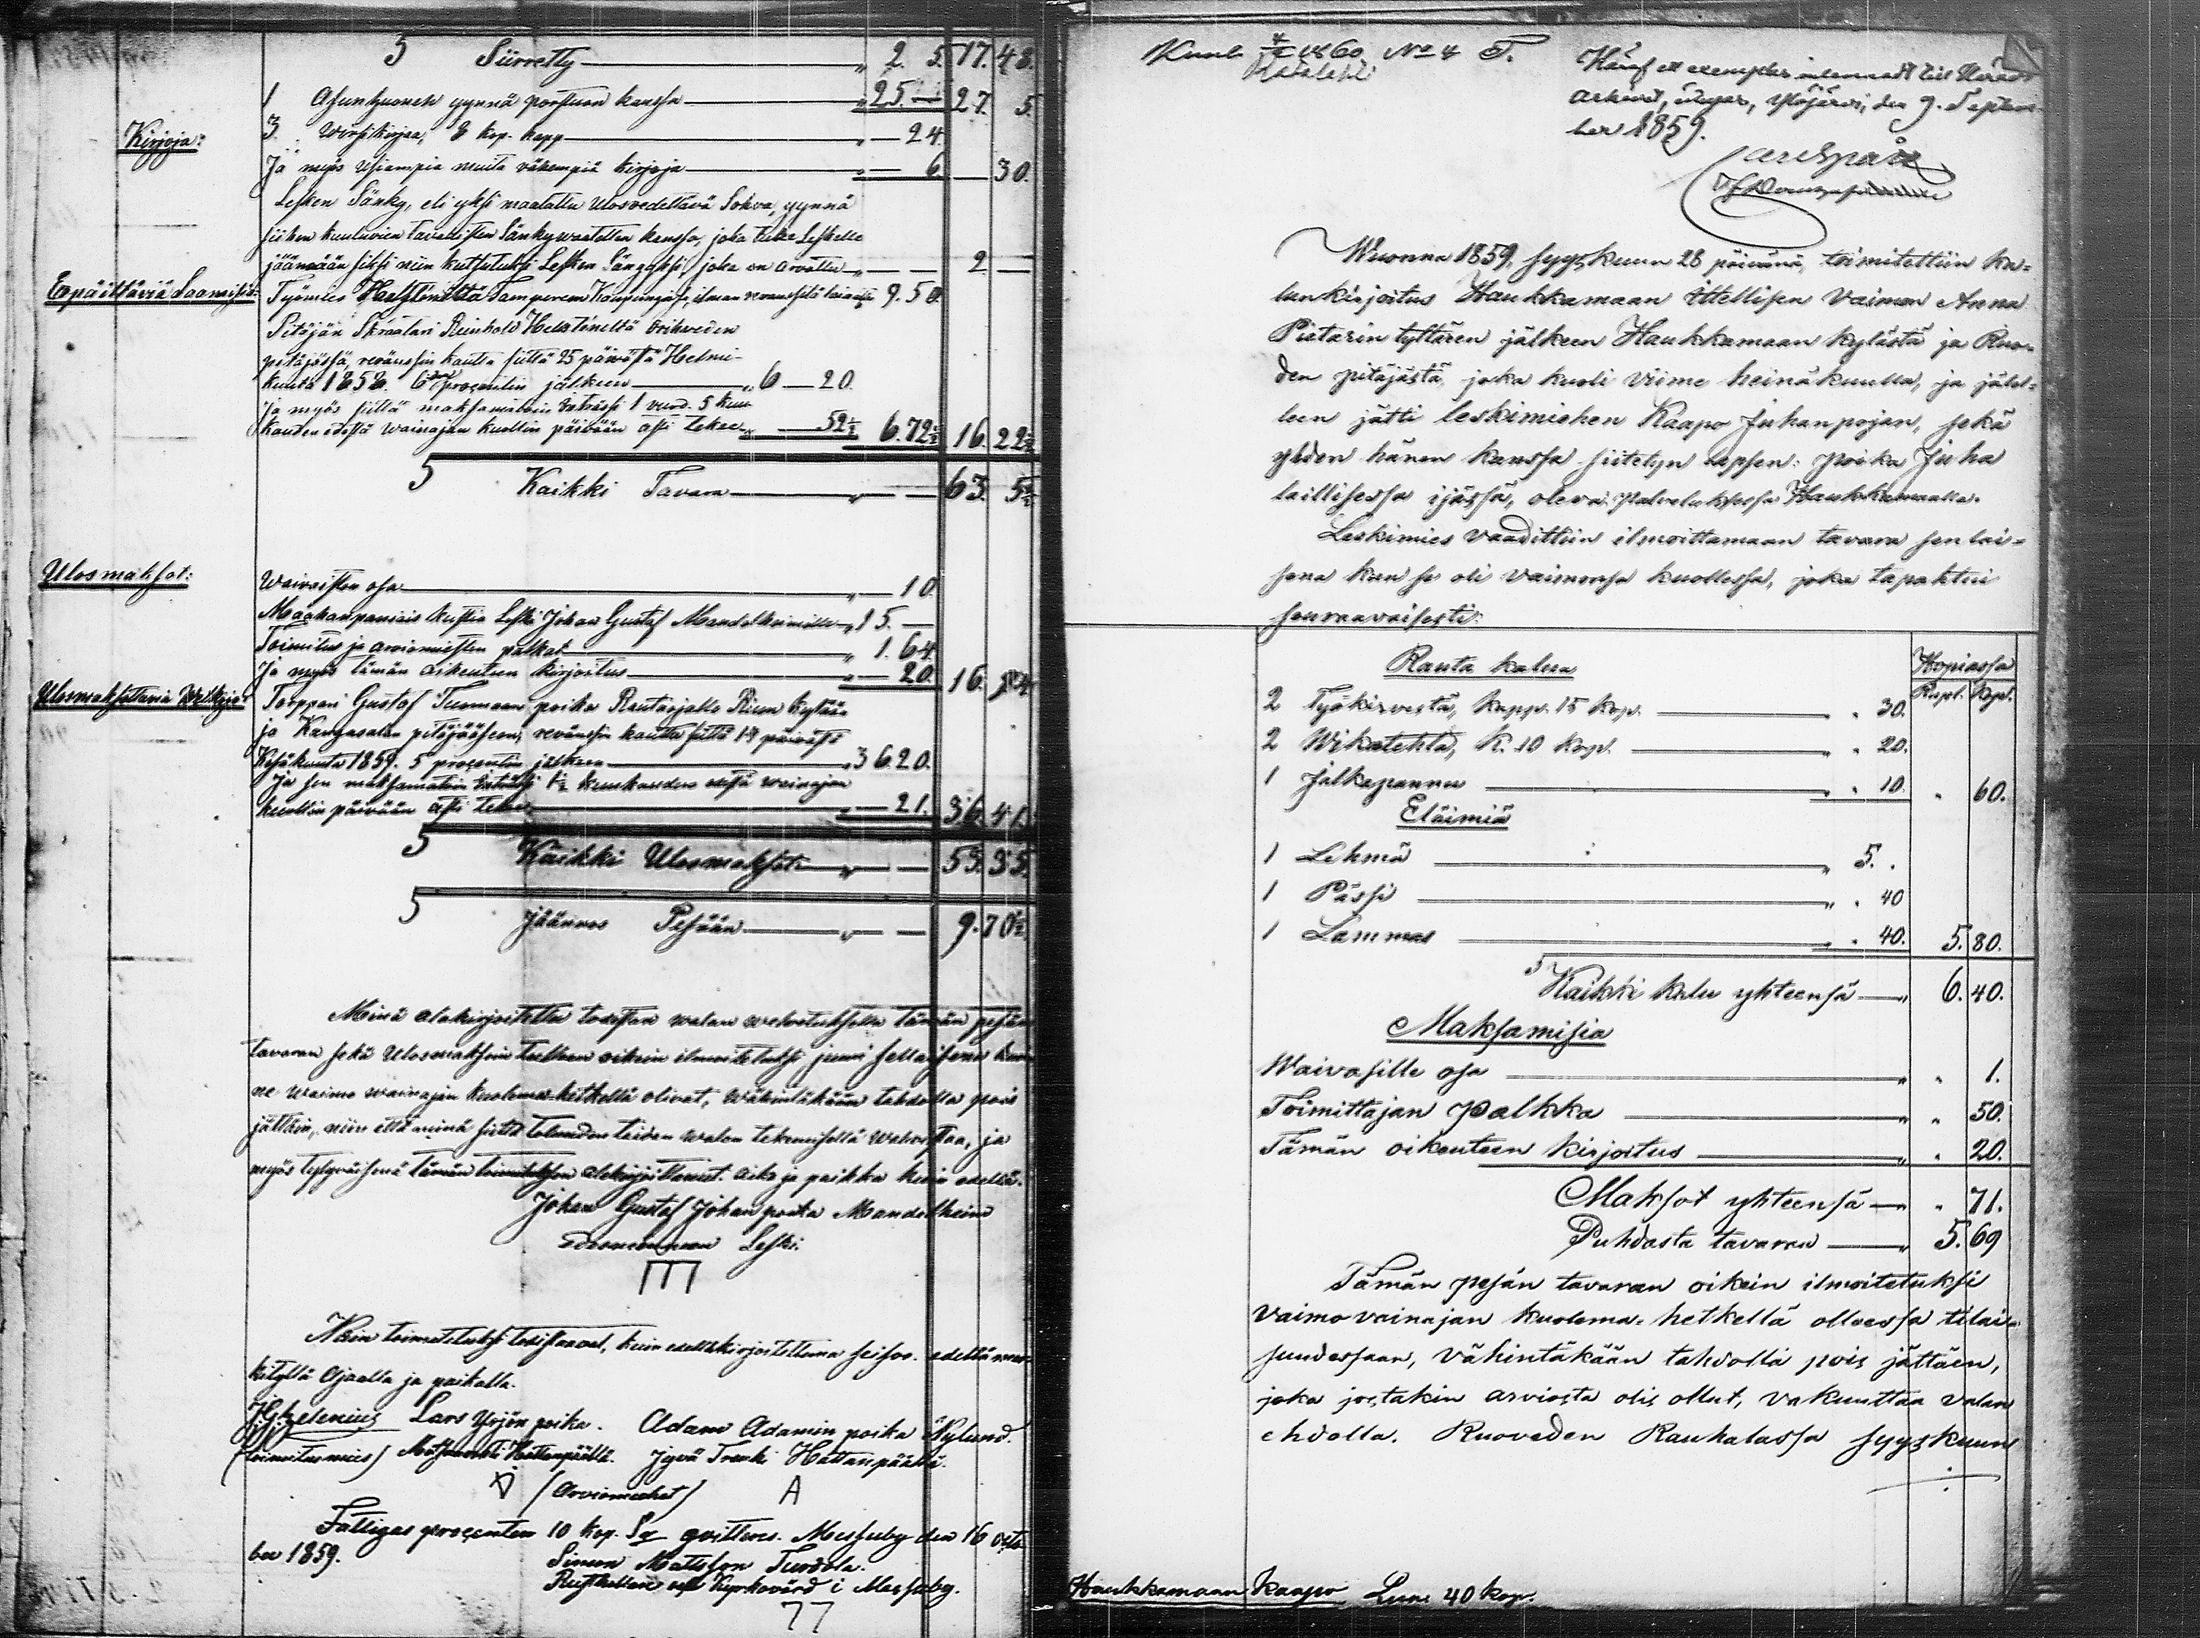 5 Siirretty „ 2. 5. 17. 43.
1 Asunhuoneh yynnä porstuan kanssa „ 25. — 27. 5.
Kirjoja:
3. Wirsikirjaa, 8 kop. kapp „ — 24.
Ja myös usiampia muita vähempiä kirjoja „ — 6 — 30.
Lesken Sänky, eli yksi maalattu Ulosvedettävä Sohva, yynnä
siihen kuuluvien tavallisten Sänkywaatetten kanssa, joka tulee Leskelle
jäämään siksi niin kutsutuksi Lesken Sängyksi, joka on arvattu „ — — 2 —
Työmies Tampereen Kaupungissa, ilman revanssitä lainassa 9. 50.
Pitäjän Skräätäri Reinhold Orihveden
pitäjässä, revänssin kautta siittä 25 päivästä Helmi-
kuuta 1858. 6 procentin jälkeen „ 6 — 20.
Ja myös siittä maksamatoin Inträssi 1 vuod. 5 kuu-
kauden edestä wainajan kuollin päivään asti tekee „ — 52½ 6. 72½ 16. 22½
5 Kaikki Tavara „ — 63. 5½
Ulosmaksot:
Waivaisten osa „ — 10
Maahanpaniais kustia Leski Johan Gustaf Mandelheimille „ 15. —
Toimitus ja arviomiesten palkat „ 1. 64.
Ja myös tämän oikeuteen kirjoitus „ — 20. 16. 94
Ulosmaksettavia Welkoja:
Torppari Gustaf Tuomaan poika Rautaojalle kylään
ja Kangasalan pitäjääseen, revänssin kautta siittä 19 päivästä
Kesäkuuta 1859. 5 procentin jälkeen „ 36. 20.
Ja sen maksamatoin Inträssi 1½ kuukauden edestä wainajan
kuollin päivään asti tekee „ — 21. 36. 41.
5 Kaikki Ulosmaksot „ — 53. 35.
5 Jäännös Pesään „ — 9. 70½
Minä alakirjoitettu todistan walan welvotuksella tämän pesän
tavaran sekä Ulosmaksoin tulleen oikein ilmoitetuksi, juuri sellaisena kuin
ne waimo wainajan kuoleman hetkellä olivat, wähintäkään tahdolla pois
jättäin, niin että minä siittä taidan walan tekemisellä wahvistaa, ja
myös tytyväisenä tämän toimituksen alakirjoittanut. Aika ja paikka kuin edellä.
Johan Gustaf Johan poika Mandelheim
Leski.
Näin toimitetuksi todistaavat, kuin edelläkirjoitettuna seisoo. edellämer-
kityllä Ajaalla ja paikalla.
Lars Yrjön poika. Adam Adamin poika Nylund.
(toimitusmies) Hattanpäällä. Jyvä Trenki Hattanpäällä.
(Arviomiehet) A
Fattigas procenten 10 kop. Sr qvitteras. Messuby den 16 octo-
ber 1859. Simon Mattsson Turdola.
Rusthållare och Kyrkovärd i Messuby.
77
1860 No 4 T.
Häraf ett exemplar inlemnadt till Härads-
arkivet, intygar, Ylöjärvi, den 9. Septem-
ber 1859.
Wuonna 1859, syyskuun 28 päivänä, toimitettiin ka-
lunkirjoitus Haukkamaan ittellisen vaimon Anna
Pietarin tyttären jälkeen Haukkamaan kylästä ja Ruo-
den pitäjästä, joka kuoli viime heinäkuulla, ja jälel-
leen jätti leskimiehen Kaapo Juhanpojan, sekä
yhden hänen kanssa siitetyn lapsen: poika Juha
laillisessa ijässä, oleva palveluksessa Haukkamaalla.
Leskimies vaadittiin ilmoittamaan tavara sen lai-
sena kun se oli vaimonsa kuollessa, joka tapahtui
seuraavaisesti:
Rauta kalua Hopiassa
Rupl. Kop.
2 Työkirvestä, kapp. 15 kop. „ „ 30.
2 Wikatehtä, K. 10 kop. „ 20.
1 Jalkapannu „ „ 10. „ 60.
Eläimiä
1 Lehmä „ 5. „
1 Pässi „ „ 40
1 Lammas „ „ 40. 5. 80.
5 Kaikki kalu yhteensä „ 6. 40.
Maksamisia
Waivasille osa „ „ 1.
Toimittajan palkka „ „ 50.
Tämän oikeuteen kirjoitus „ „ 20.
Maksot yhteensä „ 71.
Puhdasta tavaraa „ 5. 69
Tämän pesän tavaran oikein ilmoitetuksi
vaimo vainajan kuolema-hetkellä ollessa tilai-
suudessaan, vähintäkään tahdolla pois jättäen,
joka jostakin arviosta olis ollut, vakuuttaa valan
ehdolla. Ruoveden Rauhalassa syyskuun
Haukkamaan Kaapo 40 kop.